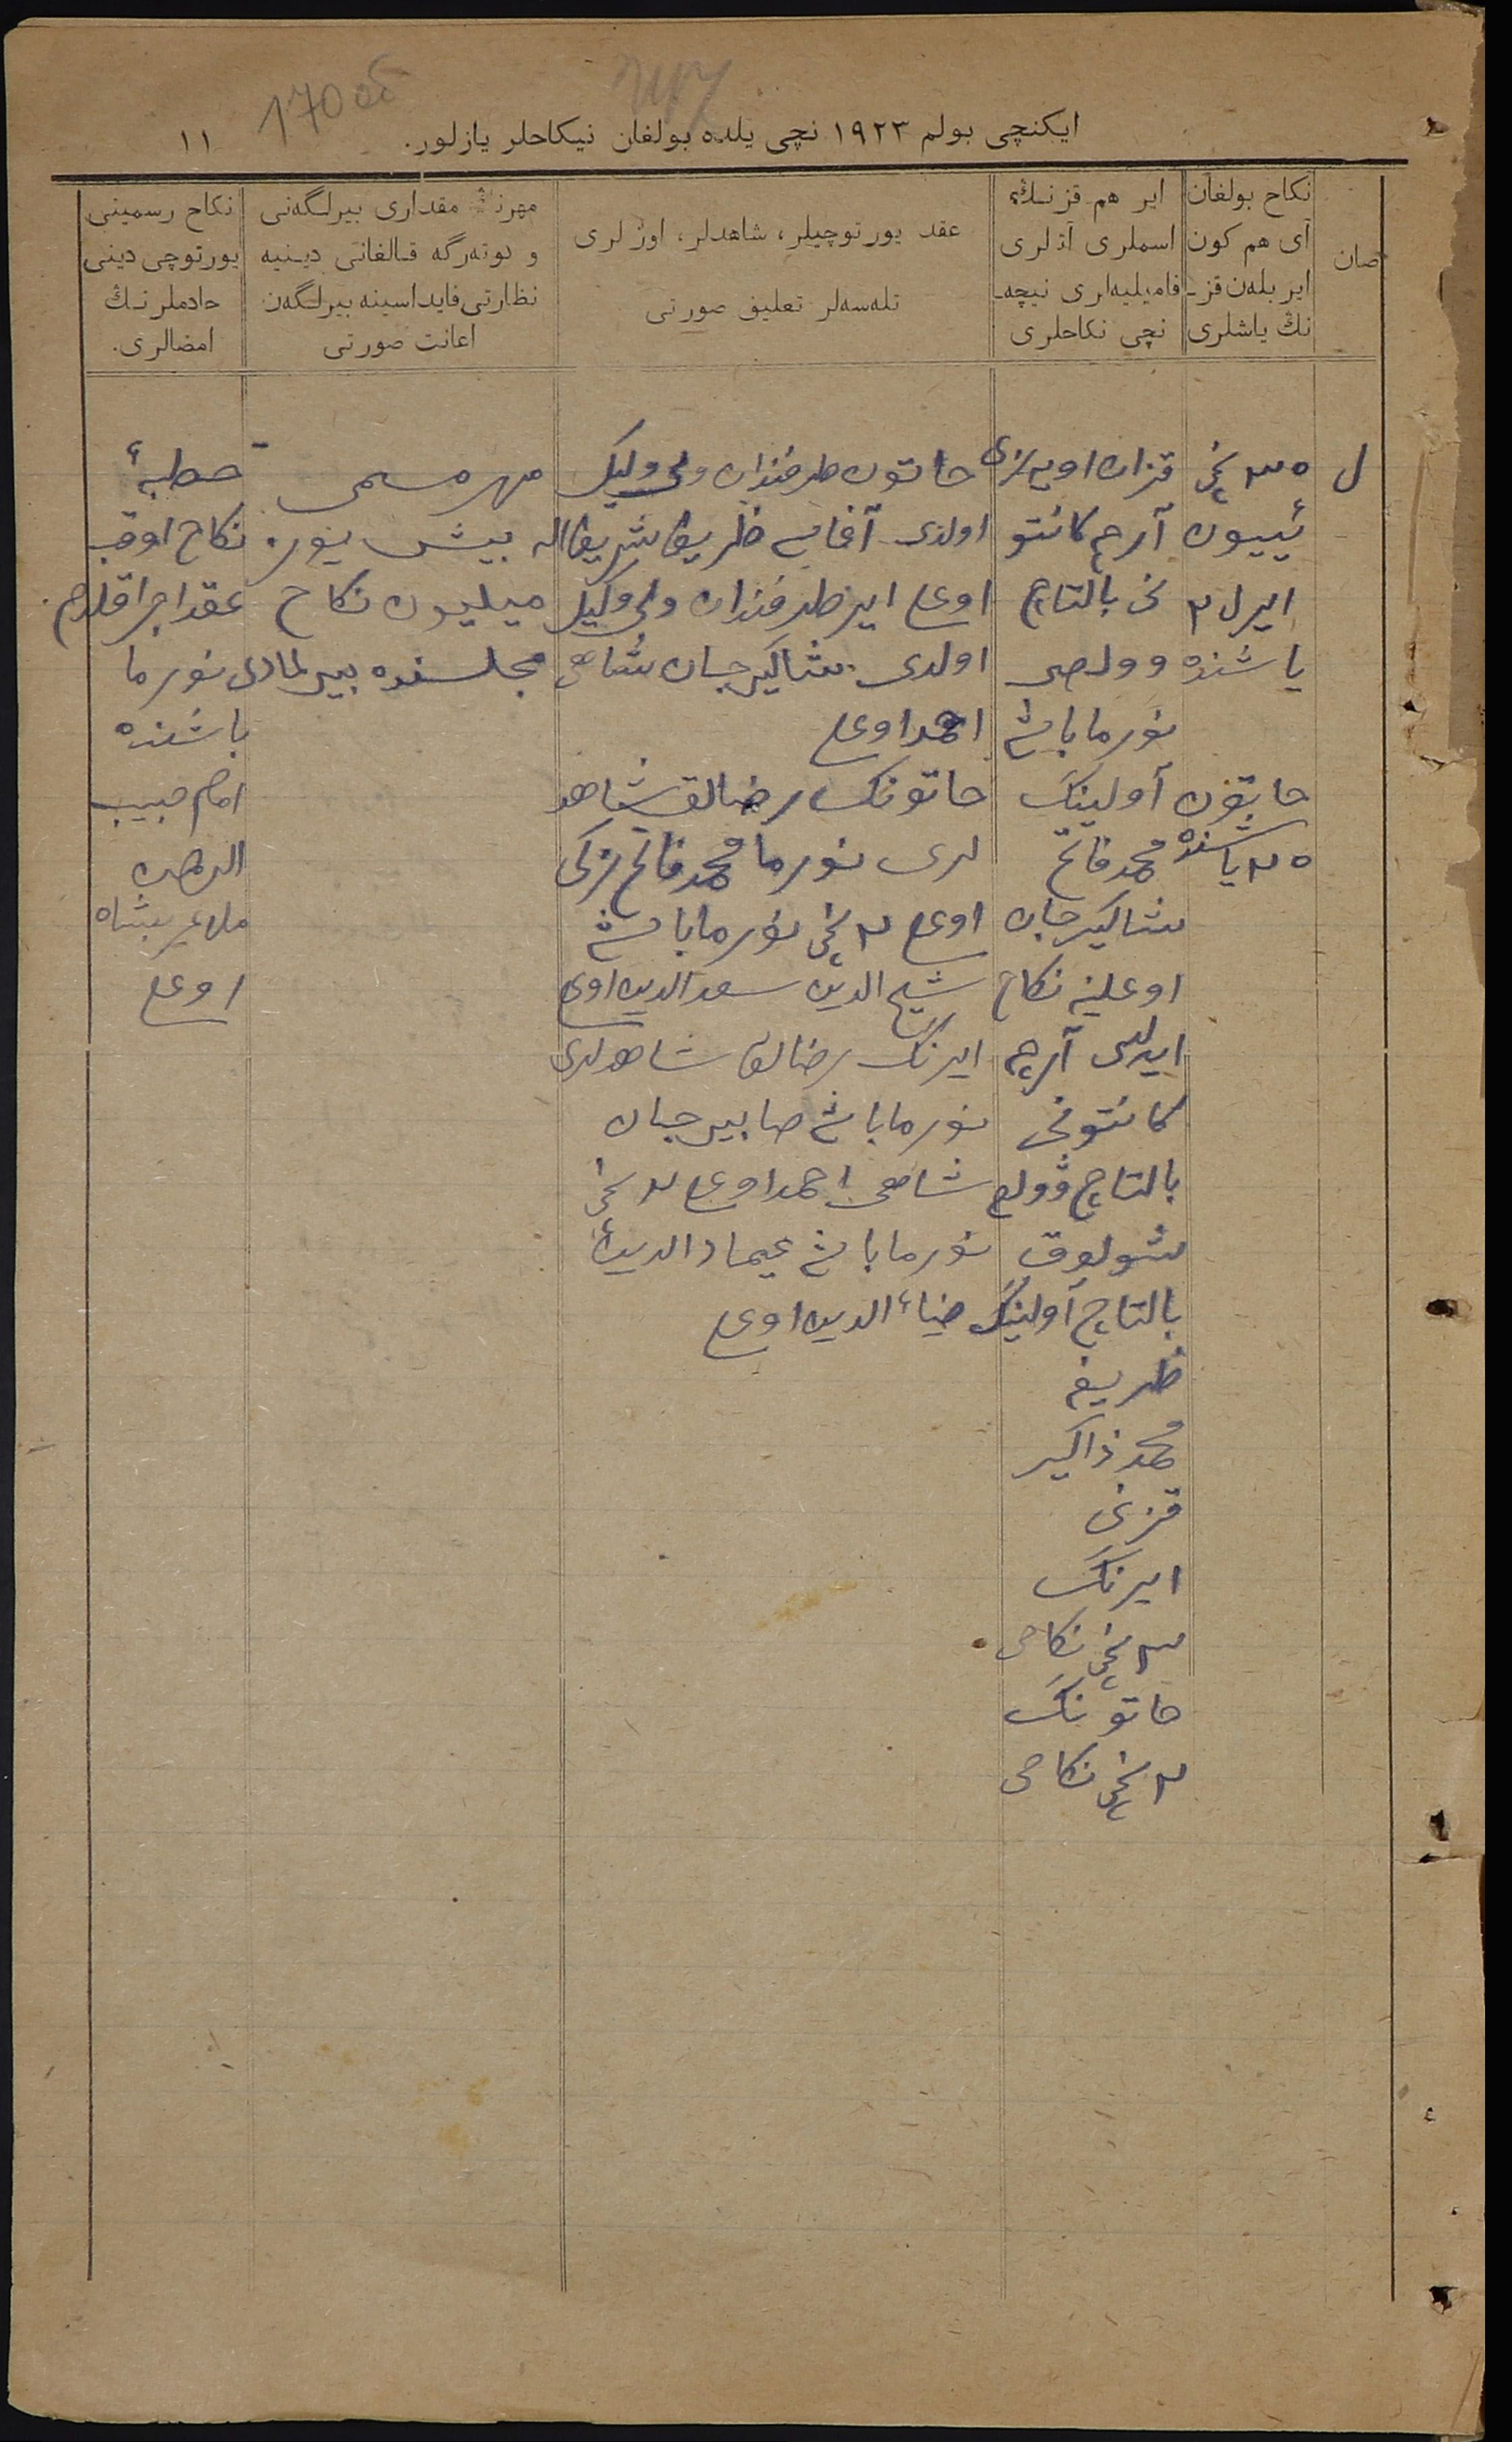 170 об
ایکنچی بولم ۱۹۲۳ نچی یلده بولغان نیکاحلر یازلور. ۱۱
صان
نکاح بولغان
آی هم کون
ایر بله‌ن قز-
نڭ یاشلری
ایر هم قزنـڭ
اسملری آتلری
فامیلیه‌لری نیچه-
نچی نکاحلری
عقد یورتوچیلر، شاهدلر، اوزلری
تله‌سه‌لر تعلیق صورتی
مهرنڭ مقداری بیرلگه‌نی
و توته‌رگه قالغانی دینیه
نظارتی فایداسینه بیرلگه‌ن
اعانت صورتی
نکاح رسمینی
یورتوچی دینی
خادملرنـڭ
امضالری.
۳۵ نچی
ئییون
ایر ل۲
یاشنده
خاتون
۲۵ یاشنده
قزان اویازی
آرچە کانتو
نی بالتاچ
وولصی
نورما باش
آولینڭ
محمد فاتح
شاکیرجان
اوغلینە نکاح
ایدلدی آرچە
کانتونی
بالتاچ وولص
شولوق
بالتاچ آولینڭ
ظریفە
محمد ذاکیر
قزنی
ایرنڭ
۳ نچی نکاحی
خاتوننڭ
۲ نچی نکاحی
خاتون طرفندان ولی وکیل
اولدی آغاسی ظریف شریف اللە
اوغلی ایر طرفندان ولی وکیل
اولدی شاکیرجان شاهی
احمد اوغلی
خاتوننڭ رضالق شاهد
لری نورما محمد فاتح زکی
اوغلی ۲ نچی نورما باش
شیخ الدین سعد الدین اوغلی
ایرنڭ رضالق شاهدلری
نورما باش صابیرجان
شاهی احمد اوغلی ۲ نچی
نورما باش عیماد الدین
ضیاء الدین اوغلی
مهر مسمی
بیش یوز
میلیون نکاح
مجلسنده بیرلمادی
خطبهٔ
نکاح اوقب
عقد اجرا قلدم.
نورما
باشنده
امام حبیب
الرحمن
ملا میرشاه
اوغلی